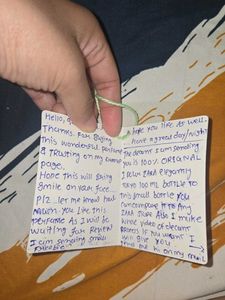 Hello,
Thanks. For Buying
This wonderful perfume
& Trusting on my
page.
Hope this will bring
smile on your face
Plz.. let me know how
you like this
Perfume As I will be
waiting for Review
I am sending small
hope you like as well.
have a great day/night
The decant I am sending
you is 100% ORIGINAL
I show ZARA Elegantly
100 ml bottle to
this small bottle you
can compare to any
ZARA Store Also I make
video of decant
process if you want I
will give you
me hi on my mail